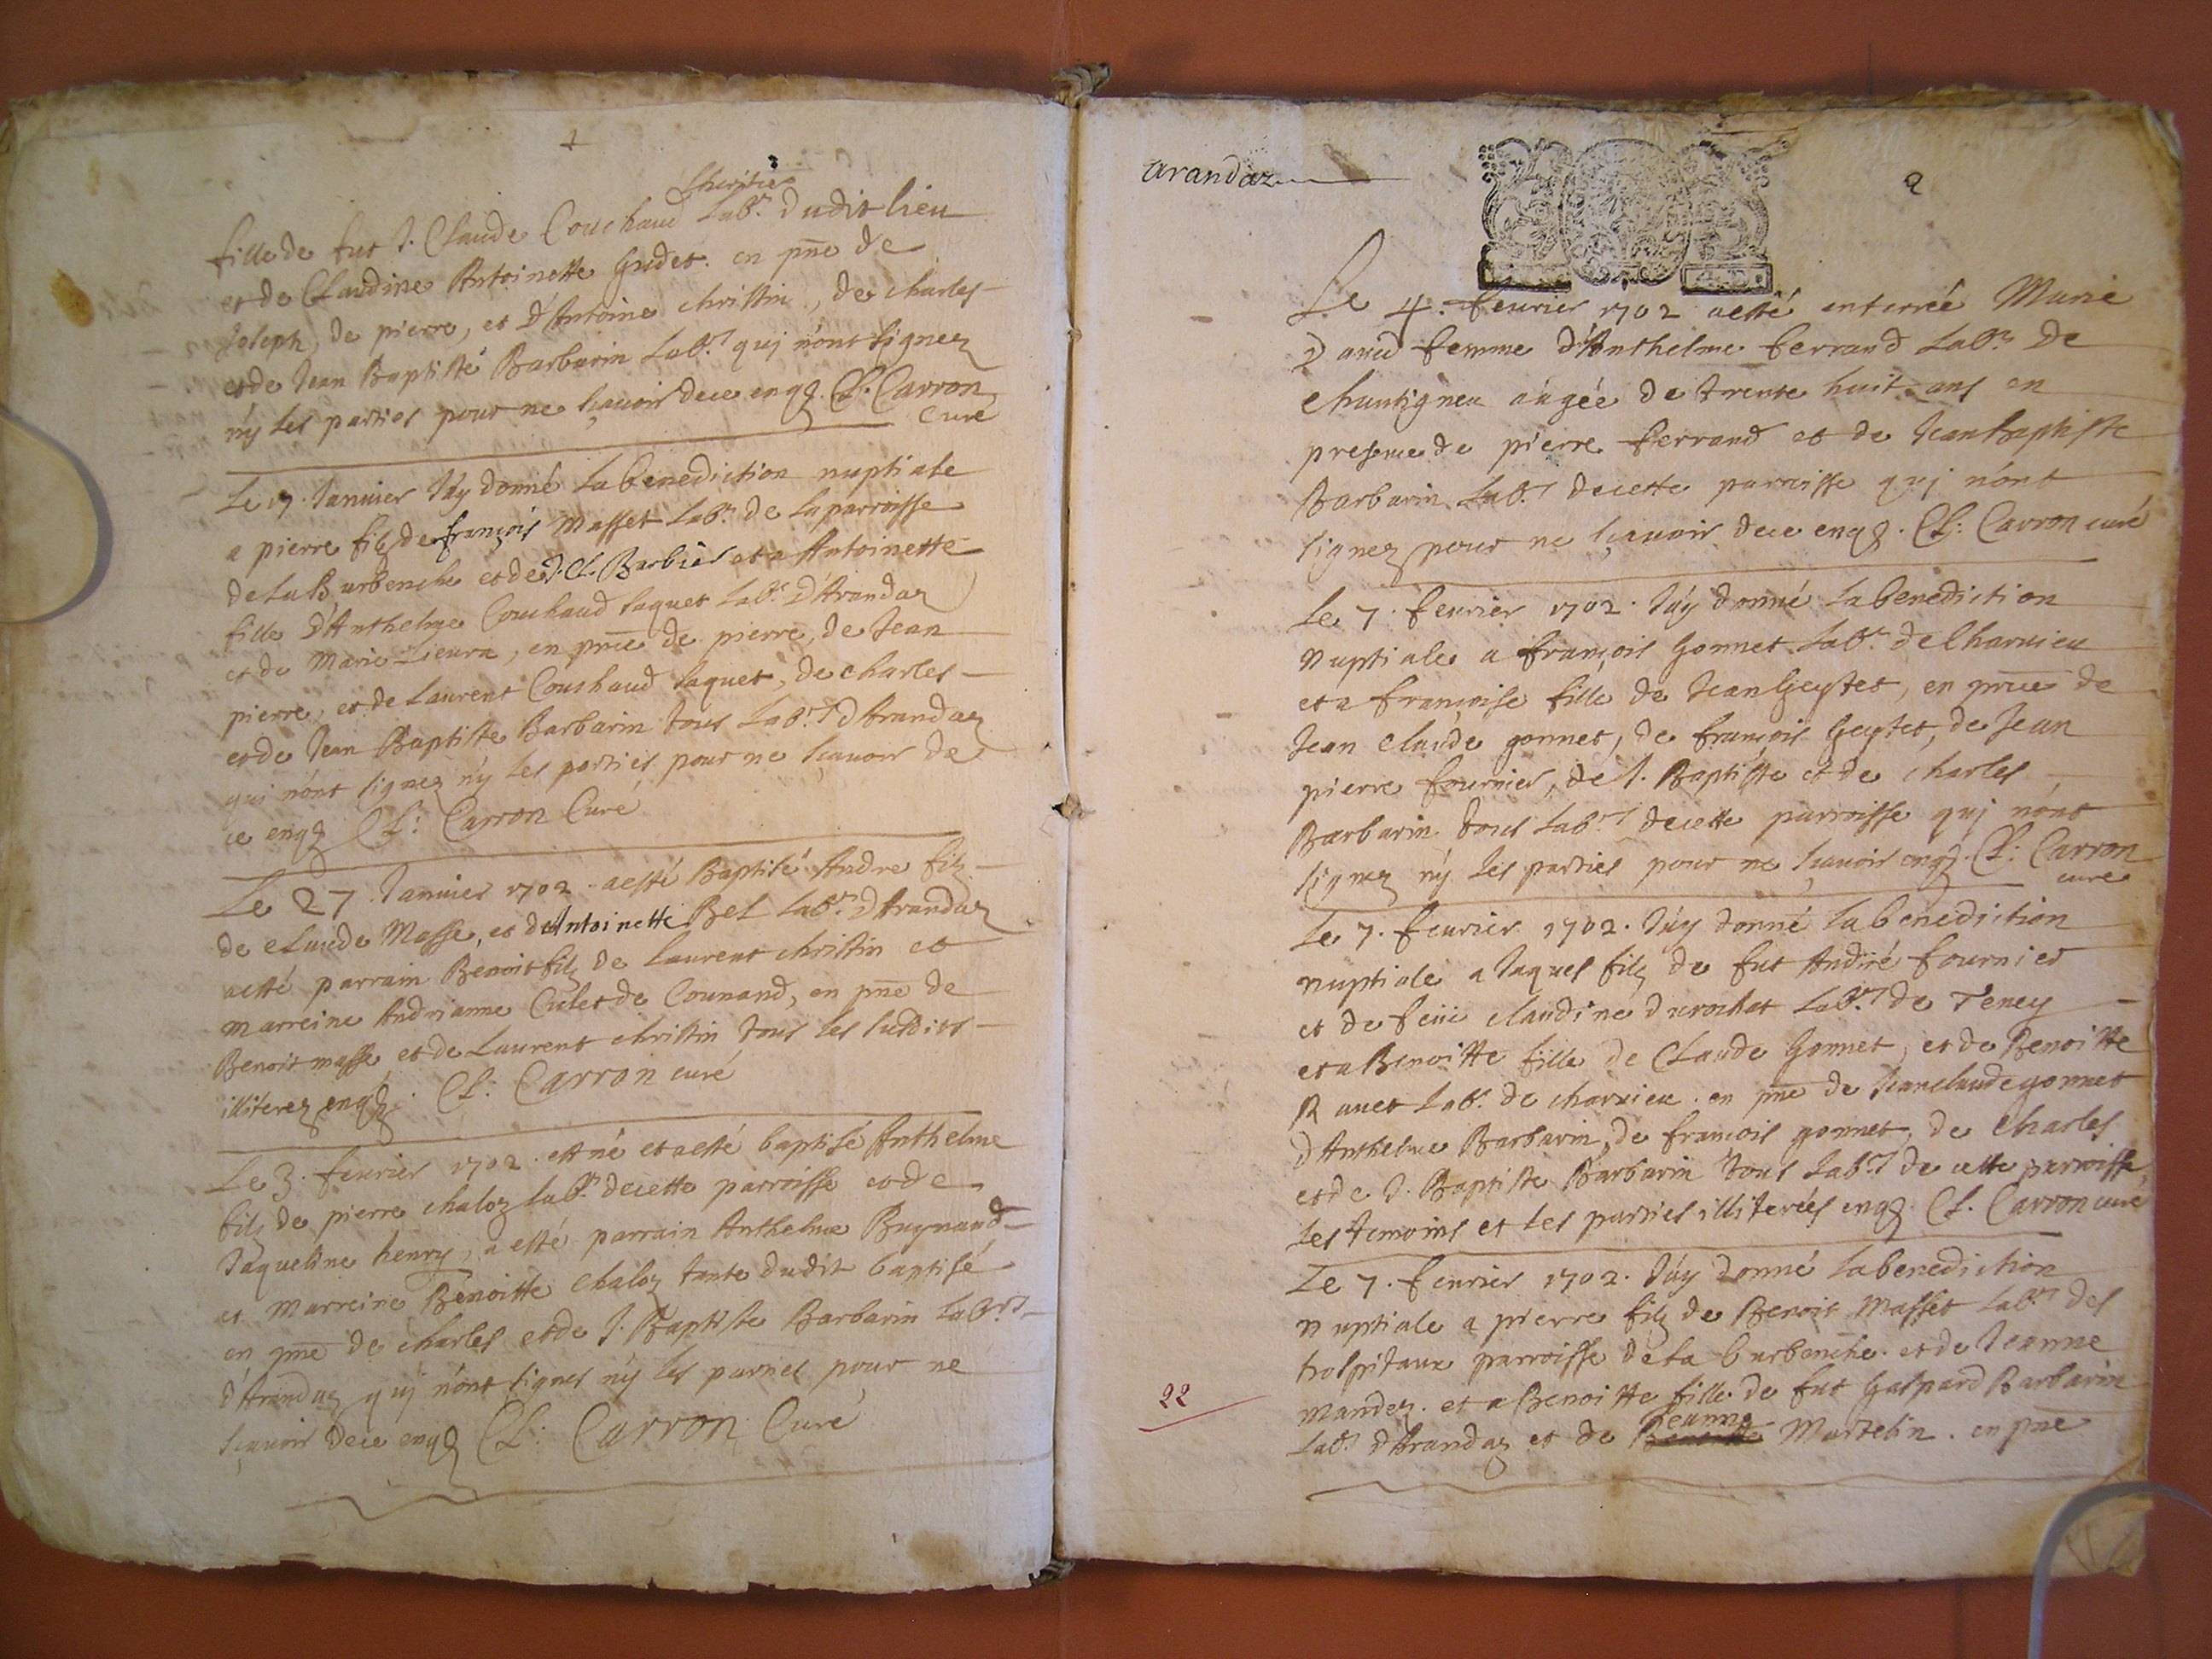 fille de fut J. Claude Couchaud Lab.r dudit lieu
et de Claudine Antoinette Gudet. en pnce de
Joseph, de pierre, et d'Antoine christin, de charles
et de Jean Baptiste Barbarin Lab.rs qui n'ont signez
n'y les parties pour ne sçavoir de ce enqs. Cl. Carron
Curé
Le 17. Janvier J'ay donné La benediction nuptiale
a pierre filz de françois Masset Lab.r de La parroisse
de La Burbenche et de J. Cl. Barbier et a Antoinette
fille d'Anthelme Couchaud Jaquet Lab.r d'Arandaz
et de Marie Lieura, en pnce de pierre, de Jean
pierre, et de Laurent Couchaud Jaquet, de charles
et de Jean Baptiste Barbarin tous Lab.rs d'Arandaz
qui n'ont signez n'y Les parties pour ne sçavoir de
ce enqs Cl: Carron Curé
Le 27 Janvier 1702. a esté Baptisé Andre filz
de claude Masse, et d'Antoinette Bel Lab.rs d'Arandaz
a esté parrain Benoit filz de Laurent christin et
marreine Andrianne Culet de Counand, en pnce de
Benoit masse, et de Laurent christin tous les susdits
illiterez enqs. Cl: Carron curé
Le 3. fevrier 1702. est né et a esté baptisé Anthelme
filz de pierre chaloz Lab.r de cette parroisse et de
Jaqueline henry, a esté parrain Anthelme Buynand
et Marreine Benoitte chaloz tante dudit baptisé
en pnce de charles et de J. Baptiste Barbarin Lab.rs
d'Arandaz quj n'ont signes n'y les parties pour ne
sçavoir de ce enqs Cl: Carron Curé
Arandaz
2
Le 4. fevrier 1702 a esté enterrée Marie
David femme d'Anthelme ferrand Lab.r de
Chantigneu âagée de trente huit ans en
presence de pierre ferrand et de Jean Baptiste
Barbarin Lab.rs de cette parroisse quj n'ont
signez pour ne sçavoir de ce enqs. Cl: Carron curé
Le 7. fevrier 1702. J'ay donné La benediction
Nuptiale a françois Gonnet Lab.r de Charvieu
et a françoise fille de Jean Geytet, en pnce de
Jean claude gonnet, de françois Geytet, de Jean
pierre fournier, de J. Baptiste et de charles
Barbarin tous Lab.rs de cette parroisse quj n'ont
signez n'y Les parties pour ne sçavoir enqs. Cl: Carron
curé
Le 7. fevrier 1702. J'ay donné La benediction
nuptiale a Jaques filz de fut André fournier
et de feue claudine durochat Lab.rs de Teney
et a Benoitte fille de Claude Gonnet, et de Benoitte
Ravet Lab.r de charvieu. en pnce de Jean claude gonnet
d'Anthelme Barbarin, de françois gonnet, de charles
et de J. Baptiste Barbarin tous Lab.rs de cette parroisse,
Les temoins et Les parties illiterées enqs Cl. Carron curé
Le 7. fevrier 1702. J'ay donné La benediction
nuptiale a pierre filz de Benoit Masset Lab.r des
hospitaux parroisse de La burbenche. et de Jeanne
mandez. et a Benoitte fille de fut Gaspard Barbarin
22
Lab.r d'Arandaz et de Jeanne Martelin. en pnce